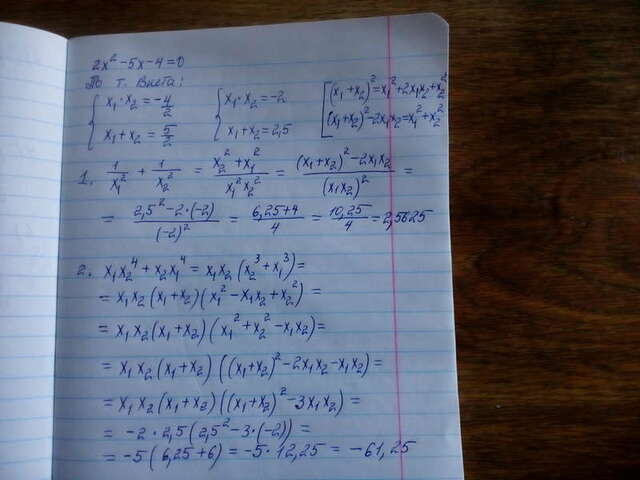 2x² - 5x - 4 = 0
По т. Виета:
{ x₁ · x₂ = -4/2   { x₁ · x₂ = -2   [ (x₁ + x₂)² = x₁² + 2x₁x₂ + x₂²
x₁ + x₂ = 5/2   x₁ + x₂ = 2,5   (x₁ + x₂)² - 2x₁x₂ = x₁² + x₂²
1. 1/x₁² + 1/x₂² = (x₂² + x₁²)/(x₁² x₂²) = ((x₁ + x₂)² - 2x₁x₂)/(x₁x₂)² =
= (2,5² - 2 · (-2))/(-2)² = (6,25 + 4)/4 = 10,25/4 = 2,5625
2. x₁x₂⁴ + x₂x₁⁴ = x₁x₂(x₂³ + x₁³) =
= x₁x₂(x₁ + x₂)(x₁² - x₁x₂ + x₂²) =
= x₁x₂(x₁ + x₂)(x₁² + x₂² - x₁x₂) =
= x₁x₂(x₁ + x₂)((x₁ + x₂)² - 2x₁x₂ - x₁x₂) =
= x₁x₂(x₁ + x₂)((x₁ + x₂)² - 3x₁x₂) =
= -2 · 2,5(2,5² - 3 · (-2)) =
= -5(6,25 + 6) = -5 · 12,25 = -61,25